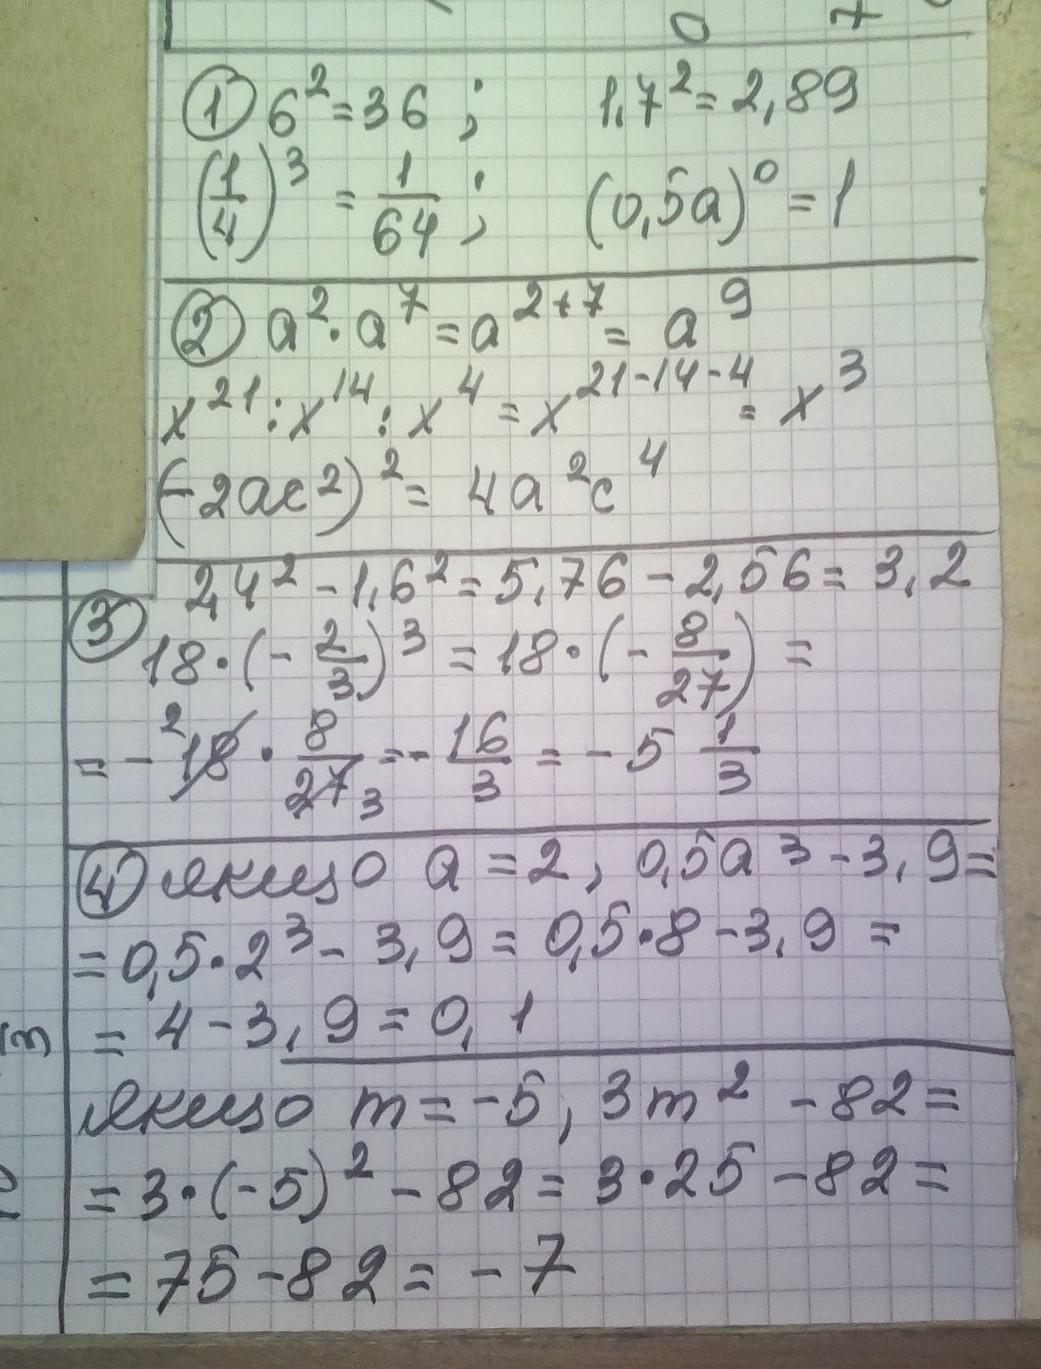 0 7
① 6² = 36 ; 1,7² = 2,89
(1/4)³ = 1/64 ; (0,5a)⁰ = 1
② a² · a⁷ = a²⁺⁷ = a⁹
x²¹ : x¹⁴ : x⁴ = x²¹⁻¹⁴⁻⁴ = x³
(-2ac²)² = 4a²c⁴
③ 2,4² - 1,6² = 5,76 - 2,56 = 3,2
18 · (-2/3)³ = 18 · (-8/27) =
= - ²18 · 8/27₃ = - 16/3 = - 5 1/3
④ якщо a = 2, 0,5a³ - 3,9 =
= 0,5 · 2³ - 3,9 = 0,5 · 8 - 3,9 =
= 4 - 3,9 = 0,1
якщо m = -5, 3m² - 82 =
= 3 · (-5)² - 82 = 3 · 25 - 82 =
= 75 - 82 = - 7